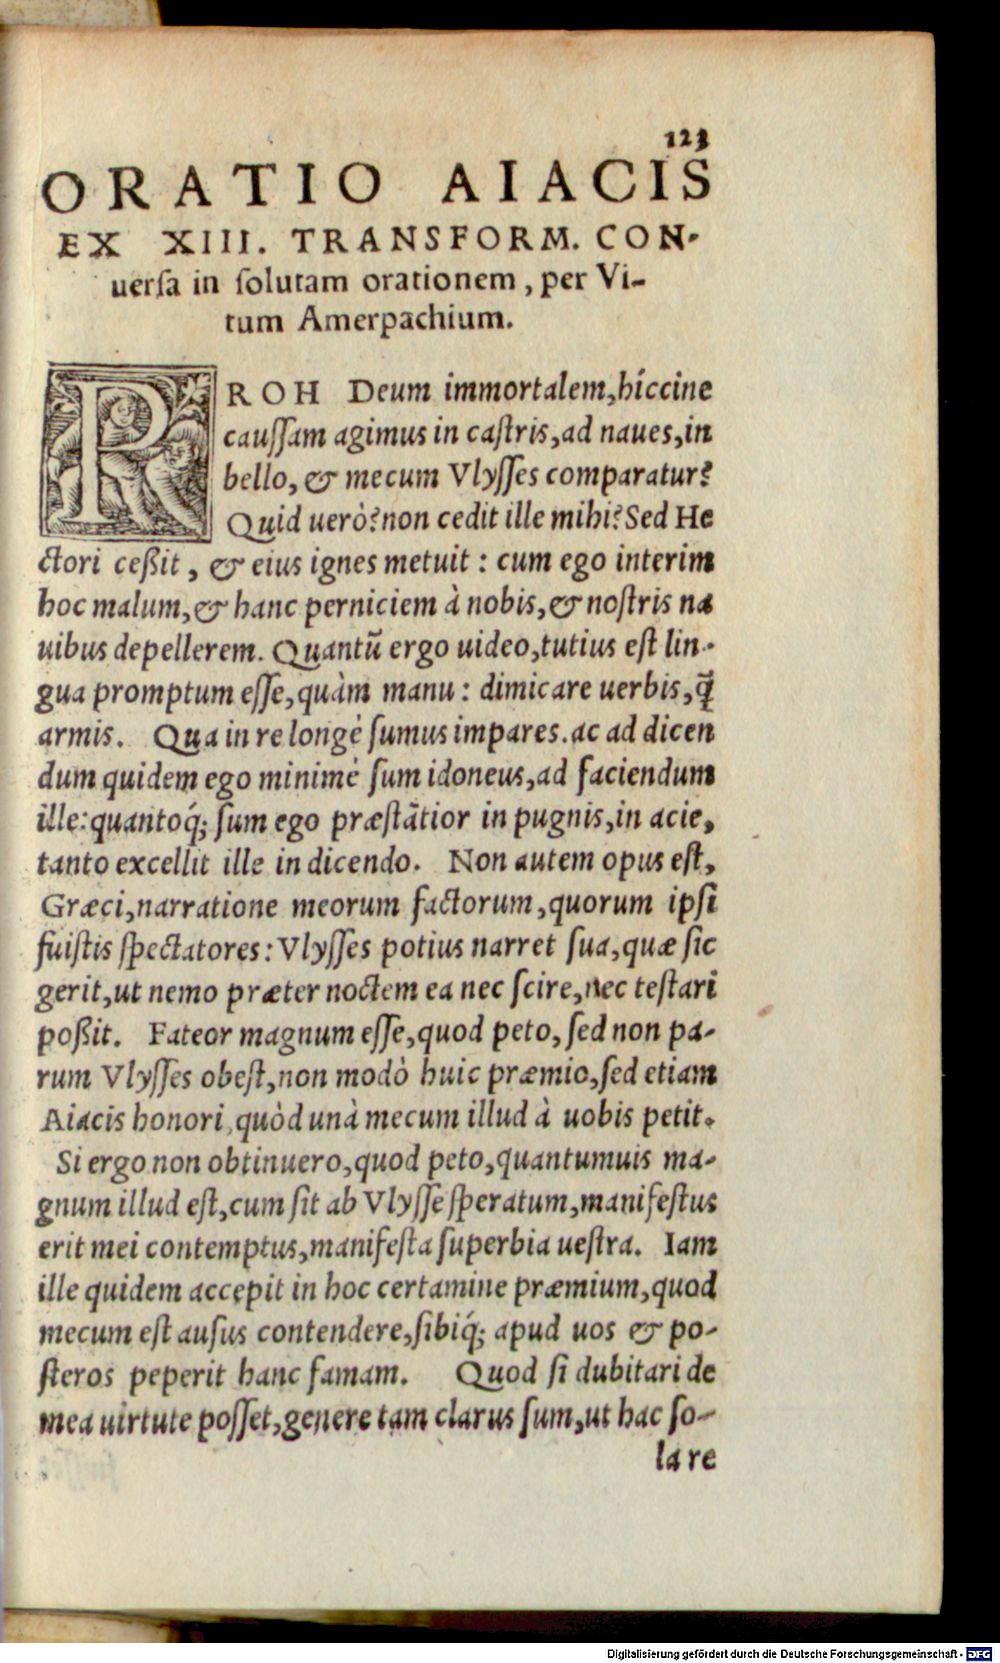 123
ORATIO AIACIS
EX XIII. TRANSFORM. CON-
uerſa in ſolutam orationem, per Vi-
tum Amerpachium.
R ROH Deum immortalem, híccine
cauſſam agimus in caſtris, ad naues, in
bello, & mecum Vlyſſes comparatur?
Quid uerò? non cedit ille mihi? Sed He
ctori ceßit, & eius ignes metuit: cum ego interim
hoc malum, & hanc perniciem à nobis, & noſtris na
uibus depellerem. Quantũ ergo uideo, tutius eſt lin-
gua promptum eſſe, quàm manu: dimicare uerbis, q̃
armis. Qua in re longè ſumus impares. ac ad dicen
dum quidem ego minimè ſum idoneus, ad faciendum
ille: quantoq́; ſum ego præſtãtior in pugnis, in acie,
tanto excellit ille in dicendo. Non autem opus eſt,
Græci, narratione meorum factorum, quorum ipſi
fuiſtis ſpectatores: Vlyſſes potius narret ſua, quæ ſic
gerit, ut nemo præter noctem ea nec ſcire, nec teſtari
poßit. Fateor magnum eſſe, quod peto, ſed non pa-
rum Vlyſſes obeſt, non modò huic præmio, ſed etiam
Aiacis honori, quòd unà mecum illud à uobis petit.
Si ergo non obtinuero, quod peto, quantumuis ma-
gnum illud eſt, cum ſit ab Vlyſſe ſperatum, manifeſtus
erit mei contemptus, manifeſta ſuperbia ueſtra. Iam
ille quidem accepit in hoc certamine præmium, quod
mecum eſt auſus contendere, ſibiq́; apud uos & po-
ſteros peperit hanc famam. Quod ſi dubitari de
mea uirtute poſſet, genere tam clarus ſum, ut hac ſo-
la re
Digitalisierung gefördert durch die Deutsche Forschungsgemeinschaft - DFG